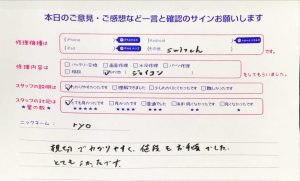 本日のご意見・ご感想など一言と確認のサインお願いします
修理機種は
iPhone
iPad
その他 switch
修理内容は
バッテリー交換 画面修理 水没修理 パーツ修理
その他 ジョイコン
をしてもらいました。
スタッフの説明は
わかりやすかったです 理解できました 少しわかりにくかったです 難しかったです
スタッフの対応は
★星の数★
とても良かったです 良かったです 普通でした
ニックネーム: ryo
親切でわかりやすく、値段もお手頃でした。
とてもよかったです。